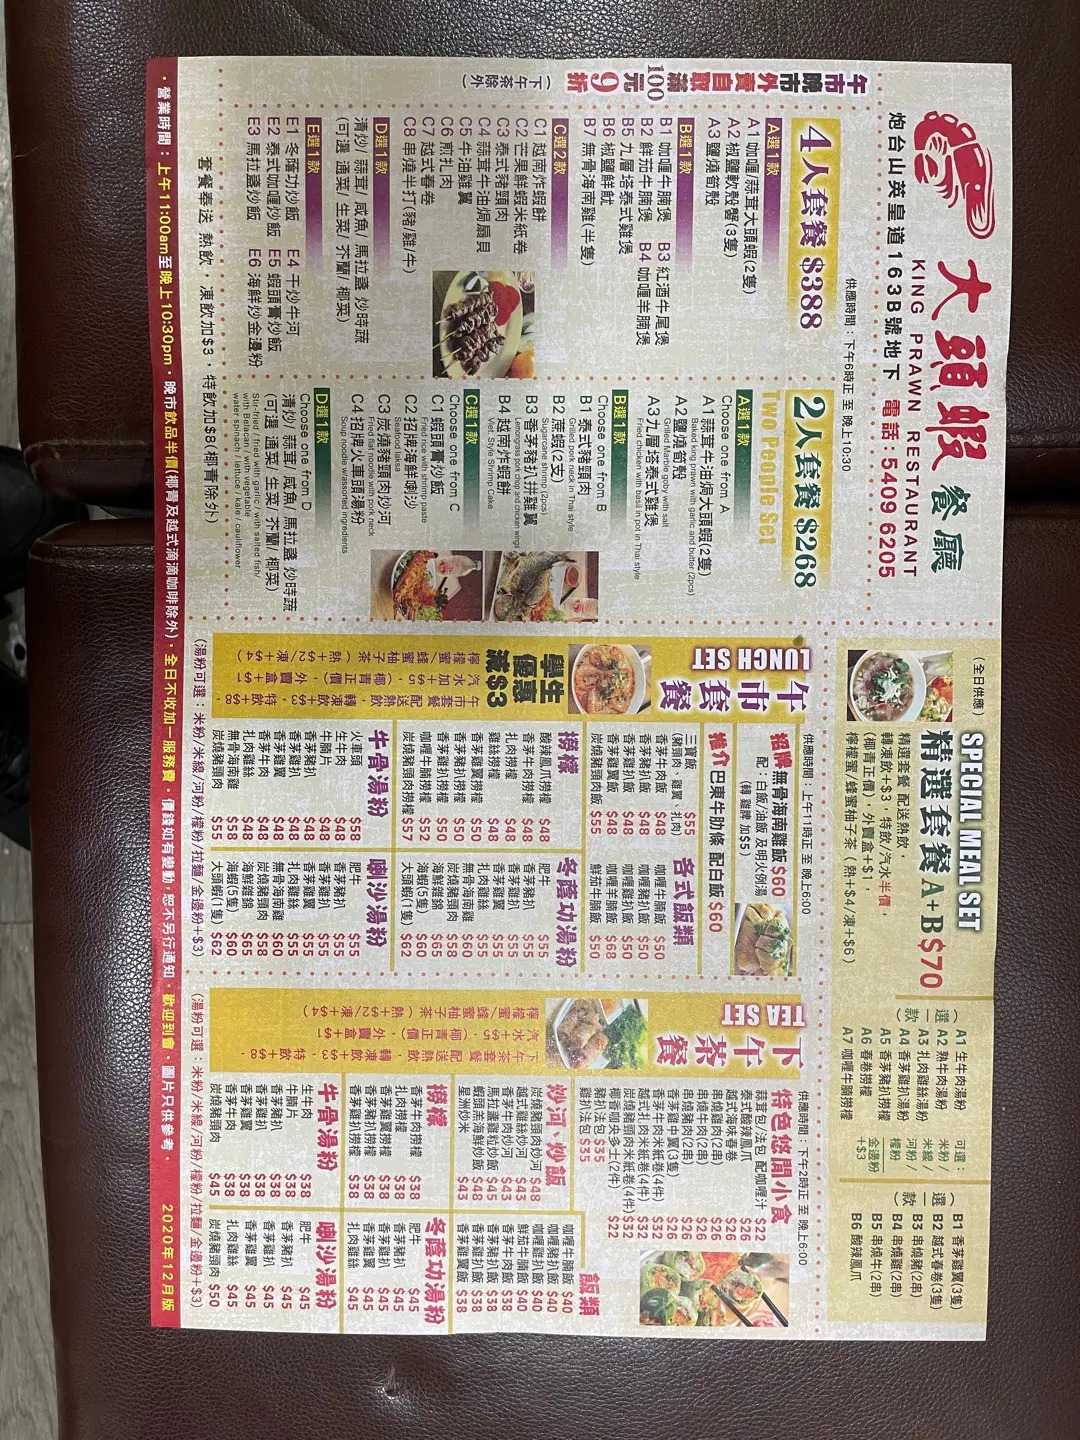 大頭蝦 餐廳
KING PRAWN RESTAURANT
炮台山英皇道163B號地下 電話:5409 6205
午市晚市外賣自取滿100元9折
(下午茶除外)
供應時間:下午6時正 至 晚上10:30
4人套餐 $388
A選1款
A1 咖喱/蒜茸大頭蝦(2隻)
A2 椒鹽軟殼蟹(3隻)
A3 鹽燒筍殼
B選1款
B1 咖喱牛腩煲 B3 紅酒牛尾煲
B2 鮮茄牛腩煲 B4 咖喱羊腩煲
B5 九層塔泰式雞煲
B6 椒鹽鮮魷
B7 無骨海南雞(半隻)
C選2款
C1 越南炸蝦餅
C2 芒果鮮蝦米紙卷
C3 泰式豬頸肉
C4 蒜茸牛油焗扇貝
C5 牛油雞翼
C6 煎扎肉
C7 越式春卷
C8 串燒半打(豬/雞/牛)
D選1款
清炒/ 蒜茸/ 咸魚/ 馬拉盞 炒時蔬
(可選 通菜/ 生菜/ 芥蘭/ 椰菜)
E選1款
E1 冬蔭功炒飯 E4 干炒牛河
E2 泰式咖喱炒飯 E5 蝦頭膏炒飯
E3 馬拉盞炒飯 E6 海鮮炒金邊粉
2人套餐 $268
Two People Set
A選1款
Choose one from A
A1 蒜茸牛油焗大頭蝦(2隻)
Baked king prawn with garlic and butter (2pcs)
A2 鹽燒筍殼
Grilled Marble goby with salt
A3 九層塔泰式雞煲
Fried chicken with basil in pot in Thai style
B選1款
Choose one from B
B1 泰式豬頸肉
Grilled pork neck in Thai style
B2 蔗蝦(2支)
Sugarcane shrimp (2pcs)
B3 香茅豬扒拼雞翼
Lemongrass pork chop and chicken wings
B4 越南炸蝦餅
Viet Style Shrimp Cake
C選1款
Choose one from C
C1 蝦頭膏炒飯
Fried rice with shrimp paste
C2 招牌海鮮喇沙
Seafood laksa
C3 炭燒豬頸肉炒河
Fried flat noodle with pork neck
C4 招牌火車頭湯粉
Soup noodle w/assorted ingredients
D選1款
Choose one from D
清炒/ 蒜茸/ 咸魚/ 馬拉盞 炒時蔬
(可選 通菜/ 生菜/ 芥蘭/ 椰菜)
Stir-fried / fried with garlic / with salted fish/
with Belacan / with vegetable
water spinach / lettuce / kale / cauliflower
套餐奉送 熱飲,凍飲加$3,特飲加$8(椰青除外)
(全日供應)
SPECIAL MEAL SET
精選套餐A+B$70
精選套餐 配送熱飲,
轉凍飲+$3,特飲/汽水半價,
(椰青正價),外賣盒+$1,
檸檬蜜/蜂蜜柚子茶 (熱+$4/凍+$6)
(選一款)
A1 生牛肉湯粉
A2 熟牛肉湯粉
A3 扎肉雞絲湯粉
A4 香茅雞扒湯粉
A5 香茅豬扒撈檬
A6 春卷撈檬
A7 咖喱牛腩撈檬
可選:
米粉/
米線/
河粉/
檬粉/
金邊粉
+$3
(選一款)
B1 香茅雞翼(3隻)
B2 越式春卷(3隻)
B3 串燒豬(2串)
B4 串燒雞(2串)
B5 串燒牛(2串)
B6 酸辣鳳爪
供應時間:上午11時正 至 晚上6:00
午市套餐
LUNCH SET
學生優惠減$3
午市套餐 配送熱飲,轉凍飲+$3,特飲+$8,
汽水加+$5,(椰青正價),外賣盒+$1
檸檬蜜/蜂蜜柚子茶 (熱+$2/凍+$4)
招牌 無骨海南雞飯 $60
配:白飯/油飯 及明火例湯
(轉 雞髀 加$5)
推介 巴東牛肋條 配白飯 $60
三寶飯 $55
(豬頸肉、雞翼、扎肉)
香茅牛肉飯 $48
香茅豬扒飯 $48
香茅雞翼飯 $48
炭燒豬頸肉飯 $55
各式飯類
咖喱牛腩飯 $50
咖喱豬扒飯 $50
咖喱雞扒飯 $50
咖喱羊腩飯 $68
鮮茄牛腩飯 $50
撈檬
酸辣鳳爪撈檬 $48
香茅牛肉撈檬 $48
扎肉撈檬 $48
雞絲撈檬 $48
香茅雞翼撈檬 $50
香茅豬扒撈檬 $50
香茅雞扒撈檬 $50
咖喱牛腩撈檬 $52
炭燒豬頸肉撈檬 $57
冬蔭功湯粉
肥牛 $55
香茅豬扒 $55
香茅雞扒 $55
香茅雞翼 $55
扎肉雞絲 $55
無骨海南雞 $60
炭燒豬頸肉 $58
海鮮雜錦 $65
海蝦(5隻) $60
大頭蝦(1隻) $62
牛骨湯粉
火車頭 $58
生牛肉 $48
牛腩片 $48
香茅豬扒 $48
香茅雞扒 $48
香茅雞翼 $48
香茅牛肉 $48
扎肉雞絲 $48
無骨海南雞 $58
炭燒豬頸肉 $55
喇沙湯粉
肥牛 $55
香茅豬扒 $55
香茅雞扒 $55
香茅雞翼 $55
扎肉雞絲 $55
無骨海南雞 $60
炭燒豬頸肉 $58
海鮮雜錦 $65
海蝦(5隻) $60
大頭蝦(1隻) $62
(湯粉可選:米粉/米線/河粉/檬粉/拉麵/金邊粉+$3)
供應時間:下午2時正 至 晚上6:00
下午茶餐
TEA SET
下午茶餐 配送熱飲,轉凍飲+$3,特飲+$8
汽水+$5,(椰青正價),外賣盒+$1
檸檬蜜/蜂蜜柚子茶 (熱+$2/凍+$4)
特色悠閒小食
蒜茸包/法包 配咖喱汁 $22
泰式酸辣鳳爪 $26
越式海味春卷 $26
串燒雞肉(2串) $26
串燒牛肉(2串) $26
串燒豬肉(2串) $26
香茅雞中翼(3隻) $26
香茅牛肉米紙卷(4件) $32
越式扎肉米紙卷(4件) $32
炭燒豬頸肉米紙卷(4件) $32
椰香咖央多士(2件) $32
豬扒法包 $35
雞扒法包 $35
炒河、炒飯
炭燒豬頸肉炒河 $48
越式雞絲炒河 $43
香茅牛肉炒河 $43
馬拉盞雞粒炒飯 $45
蝦頭羔海鮮炒飯 $48
星洲炒米 $43
飯類
咖喱牛腩飯 $40
咖喱豬扒飯 $40
咖喱雞扒飯 $40
鮮茄牛腩飯 $40
香茅豬扒飯 $38
香茅雞扒飯 $38
香茅雞翼飯 $38
撈檬
香茅牛肉撈檬 $38
扎肉撈檬 $38
香茅雞翼撈檬 $38
香茅豬扒撈檬 $38
香茅雞扒撈檬 $38
冬蔭功湯粉
肥牛 $45
香茅豬扒 $45
香茅雞扒 $45
香茅雞翼 $45
扎肉雞絲 $45
牛骨湯粉
生牛肉 $38
牛腩片 $38
香茅豬扒 $38
香茅雞扒 $38
香茅雞翼 $38
扎肉雞絲 $38
香茅牛肉 $38
炭燒豬頸肉 $45
喇沙湯粉
肥牛 $45
香茅豬扒 $45
香茅雞扒 $45
香茅雞翼 $45
扎肉雞絲 $45
炭燒豬頸肉 $50
(湯粉可選:米粉/米線/河粉/檬粉/拉麵/金邊粉+$3)
·營業時間:上午11:00am至晚上10:30pm·晚市飲品半價(椰青及越式滴滴咖啡除外)·全日不收加一服務費·價錢如有變動,恕不另行通知·歡迎到會·圖片只供參考· 2020年12月版